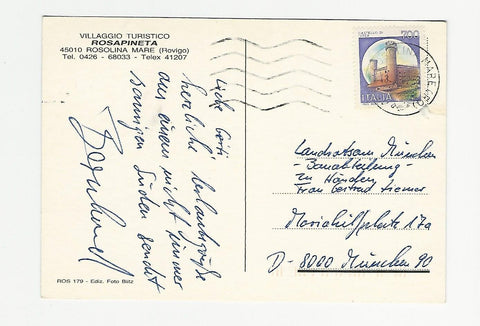 VILLAGGIO TURISTICO
ROSAPINETA
45010 ROSOLINA MARE (Rovigo)
Tel. 0426 - 68033 - Telex 41207
Liebe Gerti
herzliche Urlaubsgrüße
aus einem nicht immer
sonnigen Süden sendet
Bernhard
ROS 179 - Ediz. Foto Blitz
CASTELLO DI
700
ITALIA
MARE (RO)
Landratsamt München
- Bauabteilung -
zu Händen
Frau Gertrud
Mariahilfplatz 17a
D - 8000 München 90